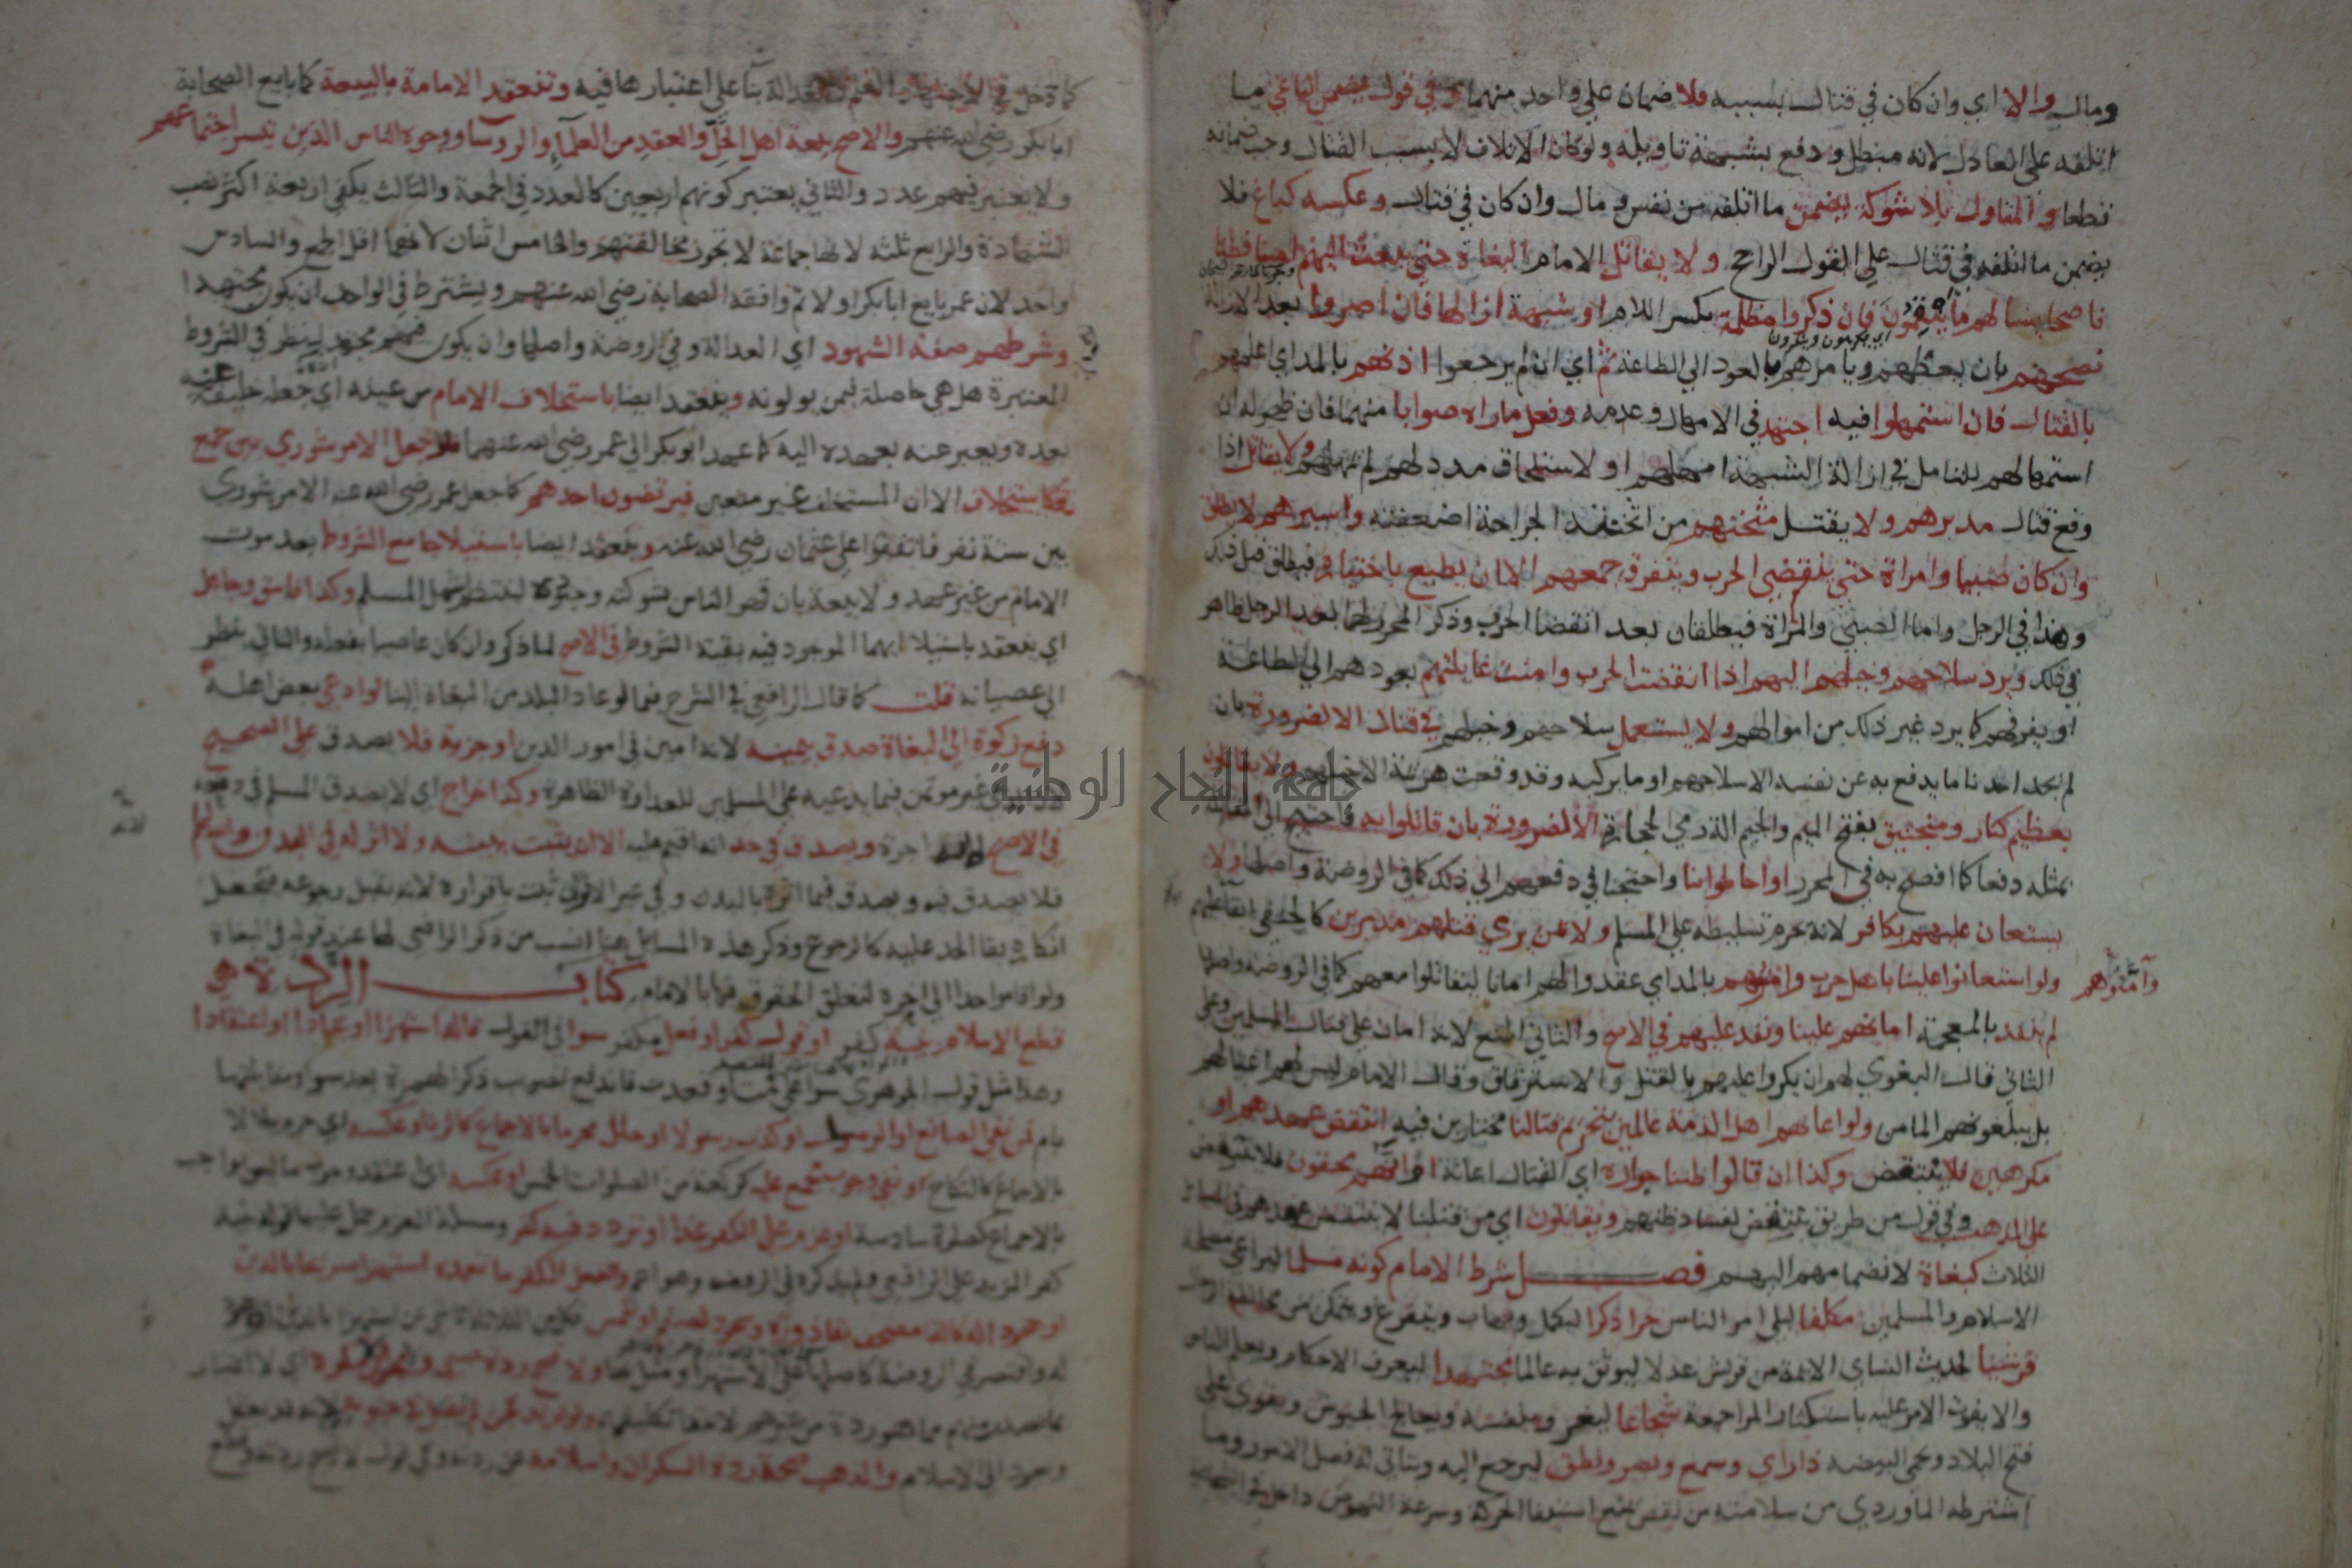 ومال والا اي وان كان في قتال بسببه فلا ضمان علي واحد منهما وفي قول يضمن الباغي ما
اتلفه على العادل لانه مبطل ودفع بشبهة تاويله ولو كان الاتلاف لا بسبب القتال وجب ضمانه
قطعا والمتاول بلا شوكة يضمن ما اتلفه من نفس ومال وان كان في قتال وعكسه كباغ فلا
يضمن ما اتلفه في قتال علي القول الراجح ولا يقاتل الامام البغاة حتى يبعث اليهم امينا فطنا
ناصحا يسالهم ما ينقمون فان ذكروا مظلمة بكسر اللام او شبهة ازالها فان اصروا بعد الازالة
اي يكرهون
نصحهم بان يعظهم ويامرهم بالعود الي الطاعة ثم اي ان لم يرجعوا اذنهم بالمد اي اعلمهم
بالقتال فان استمهلوا فيه اجتهد في الامهال وعدمه وفعل ماراه صوابا منهما فان ظهر له ان
استمهالهم للتامل في ازالة الشبهة امهلهم او لاستلحاق مدد لهم لم يمهلهم ولا يقاتل اذا
وقع قتال مدبرهم ولا يقتل مثخنهم من اثخنته الجراحة اضعفته واسيرهم لا يطلق
وان كان صبيا وامراة حتى ينقضي الحرب ويتفرق جمعهم الا ان يطيع باختياره فيطلق قبل ذلك
وهذا في الرجل واما الصبي والمراة فيطلقان بعد انقضا الحرب وذكر المحرر لهما بعد الرجل ظاهر
في ذلك ويرد سلاحهم وخيلهم اليهم اذا انقضت الحرب وامنت غايلتهم بعودهم الي الطاعة
او تفرقهم كما يرد غير ذلك من اموالهم ولا يستعمل سلاحهم وخيلهم في قتال الا لضرورة بان
لم يجد احدنا ما يدفع به عن نفسه الا سلاحهم او ما يركبه وقد وقعت هزيمة الا خيلهم ولا يقاتلون
جامعة النجاح الوطنية
بعظيم كنار ومنجنيق بفتح الميم والجيم الة رمي الحجارة الا لضرورة بان قاتلوا به فاحتيج الى المقاتلة
بمثله دفعا كما افصح به في المحرر او احاطوا بنا واحتجنا في دفعهم الي ذلك كما في الروضة واصلها ولا
يستعان عليهم بكافر لانه يحرم تسليطه علي المسلم ولا بمن يري قتلهم مدبرين كالحنفي ابقا عليهم
ولو استعانوا علينا باهل حرب وامنوهم بالمد اي عقدوا لهم امانا ليقاتلوا معهم كما في الروضة واصلها
وآمنوهم
لم ينفذ بالمعجمة امانهم علينا ونفذ عليهم في الاصح والثاني المنع لانه امان علي قتال المسلمين وعلى
الثاني قال البغوي لهم ان يكروا عليهم بالقتل والاسترقاق وقال الامام ليس لهم اغتيالهم
بل يبلغونهم المامن ولو اعانهم اهل الذمة عالمين بتحريم قتالنا مختارين فيه انتقض عهدهم او
مكرهين فلا ينتقض وكذا ان قالوا ظننا جوازه اي القتال اعانة او انهم محقون فلا ينتقض
على المذهب وفي قول من طريق ينتقض لفساد ظنهم ويقاتلون اي من قتلنا لا ينتقض عهدهم في المسائل
الثلاث كبغاة لانضمامهم اليهم فصل شرط الامام كونه مسلما ليراعي مصلحة
الاسلام والمسلمين مكلفا ليلي امر الناس حرا ذكرا ليكمل ويهاب ويتفرغ ويتمكن من مخالطة الرجال
قرشيا لحديث النساي الائمة من قريش عدلا ليوثق به عالما مجتهدا ليعرف الاحكام ويعلم الناس
والا يفوت الامر عليه باستكثار المراجعة شجاعا ليغزو بنفسه ويعالج الجيوش ويقوى على
فتح البلاد ويحمي البيضة ذا راي وسمع وبصر ونطق ليرجع اليه ويتاتى له فصل الامور وما
اشترطه الماوردي من سلامته من نقص يمنع استيفا الحركة وسرعة النهوض داخل في الشجاعة
كما دخل في الاجتهاد العلم والعدالة بنآ على اعتبارها فيه وتنعقد الامامة بالبيعة كما بايع الصحابة
ابا بكر رضي الله عنهم والاصح بيعة اهل الحل والعقد من العلمآء والروسا ووجوه الناس الذين تيسر اجتماعهم
ولا يعتبر فيهم عدد والثاني يعتبر كونهم اربعين كالعدد في الجمعة والثالث يكفي اربعة اكثر نصب
الشهادة والرابع ثلثة لانها جماعة لا تجوز مخالفتهم والخامس اثنان لانهما اقل الجمع والسادس
واحد لان عمر بايع ابا بكر اولا ثم وافقه الصحابة رضي الله عنهم ويشترط في الواحد ان يكون مجتهدا
وشرطهم صفة الشهود اي العدالة وفي الروضة واصلها وان يكون فيهم مجتهد لينظر في الشروط
المعتبرة هل هي حاصلة فيمن يولونه وينعقد ايضا باستخلاف الامام من عينه اي جعله خليفة
بعده ويعبر عنه بعهده اليه كما عهد ابو بكر الى عمر رضي الله عنهما فلو جعل الامر شوري بين جمع
فكاستخلاف الا ان المستخلف غير متعين فيرتضون احدهم كما جعل عمر رضي الله عنه الامر شوري
بين ستة نفر فاتفقوا على عثمان رضي الله عنه وينعقد ايضا باستيلا جامع الشروط بعد موت
الامام من غير عهد ولا بيعة بان قهر الناس بشوكته وجنوده لينتظم شمل المسلمين وكذا فاسق وجاهل
اي ينعقد باستيلا ايهما الموجود فيه بقية الشروط في الاصح لما ذكر وان كان عاصيا بفعله والثاني ينظر
الي عصيانه قلت كما قال الرافعي في الشرح فيما لو عاد البلد من البغاة الينا لو ادعى بعض اهله
دفع زكوة الي البغاة صدق بيمينه لانه امين في امور الدين او جزية فلا يصدق على الصحيح
لانه غير موتمن فيما يدعيه على المسلمين للعداوة الظاهرة وكذا خراج اي لا يصدق المسلم في دفعه
في الاصح لانه اجرة ويصدق في حد انه اقيم عليه الا ان يثبت ببينة ولا اثر له في البدن والله اعلم
فلا يصدق فيه ويصدق فيما اثره بالبدن وفي غير الاثر ان ثبت باقراره لانه يقبل رجوعه فيجعل
انكاره بقا الحد عليه كالرجوع وذكر هذه المسائل هنا انسب من ذكر الرافعي لها عند قوله في البغاة
ولو اقاموا حدا الي اخره لتعلق الحقوق فيها بالامام كتاب الردة هي
قطع الاسلام بنية كفر او قول كفر او فعل مكفر سوا في القول قاله استهزا او عنادا او اعتقادا
وهذا مثل قول الجوهري سوا علي قمت او قعدت فاندفع تصويب ذكر الهمزة بعد سوا ومقابلتها
بام فمن نفى الصانع او الرسل او كذب رسولا او حلل محرما بالاجماع كالزنا وعكسه اي حرم حلالا
بالاجماع كالنكاح او نفى وجوب مجمع عليه كركعة من الصلوات الخمس او عكسه اي اعتقد وجوب ما ليس بواجب
بالاجماع كصلوة سادسة او عزم على الكفر غدا او تردد فيه كفر ومسئلة العزم
كفر المزيد علي الرافعي ولم يذكره في الروضة والفعل المكفر ما تعمده استهزا صريحا بالدين
او جحودا له كالقا مصحف بقاذورة وسجود لصنم او شمس
ولا تصح ردة صبي ومجنون ومكره اي لا اعتبار
بما صدر منهم مما هو ردة من غيرهم لانتفا تكليفهم ولو ارتد فجن لم يقتل في جنونه لانه قد يعقل
ويعود الي الاسلام والمذهب صحة ردة السكران واسلامه عن ردته وفي قول لا تصح ردته